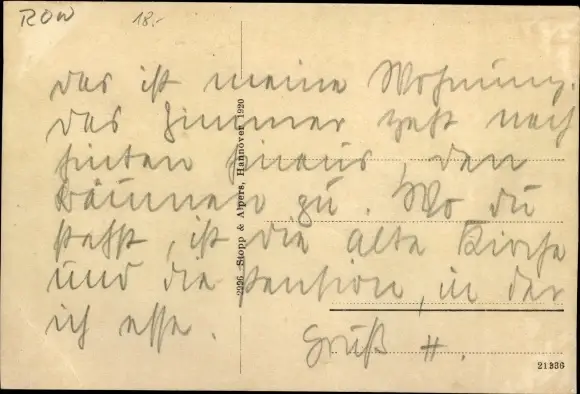 ROW 18.-
das ist meine Wohnung.
Das Zimmer geht nach
hinten hinaus, den
Bäumen zu. Wo du
stehst, ist die alte Kirche
und die Pension, in der
ich esse.
Gruß H.
2226 Stopp & Alpers, Hannover 1920
21336